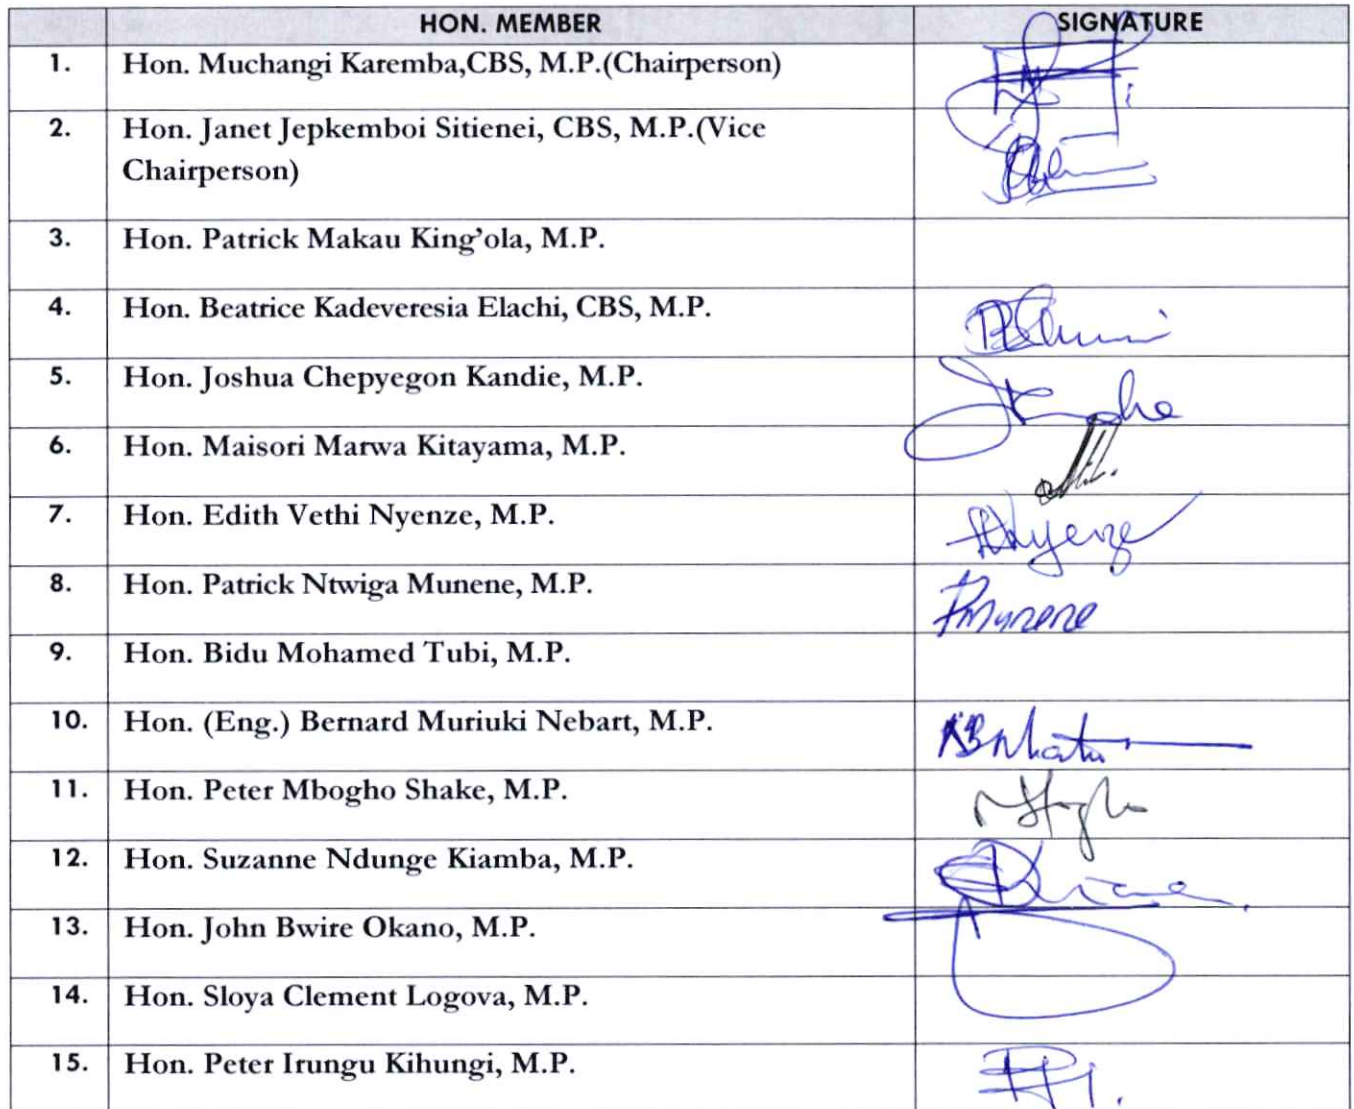 HON. MEMBER SIGNATURE
1. Hon. Muchangi Karemba,CBS, M.P.(Chairperson)
2. Hon. Janet Jepkemboi Sitienei, CBS, M.P.(Vice
Chairperson)
3. Hon. Patrick Makau King'ola, M.P.
4. Hon. Beatrice Kadeveresia Elachi, CBS, M.P.
5. Hon. Joshua Chepyegon Kandie, M.P.
6. Hon. Maisori Marwa Kitayama, M.P.
7. Hon. Edith Vethi Nyenze, M.P. Nyenze
8. Hon. Patrick Ntwiga Munene, M.P. PMunene
9. Hon. Bidu Mohamed Tubi, M.P.
10. Hon. (Eng.) Bernard Muriuki Nebart, M.P.
11. Hon. Peter Mbogho Shake, M.P.
12. Hon. Suzanne Ndunge Kiamba, M.P.
13. Hon. John Bwire Okano, M.P.
14. Hon. Sloya Clement Logova, M.P.
15. Hon. Peter Irungu Kihungi, M.P.